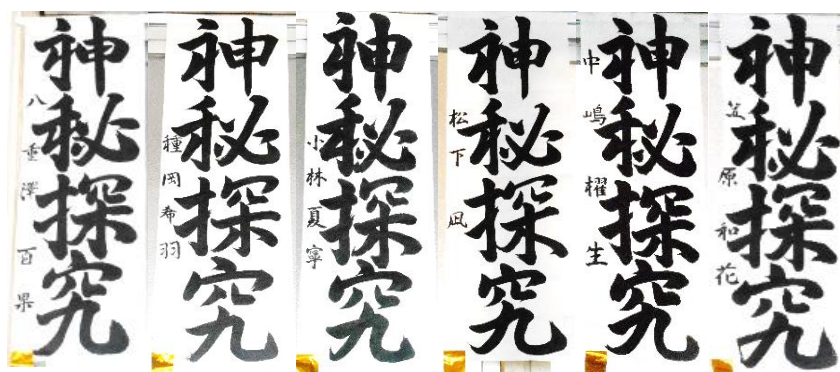 神秘探究
八重澤百果
神秘探究
種岡希羽
神秘探究
小林夏寧
神秘探究
松下凪
神秘探究
中嶋櫂生
神秘探究
笠原和花